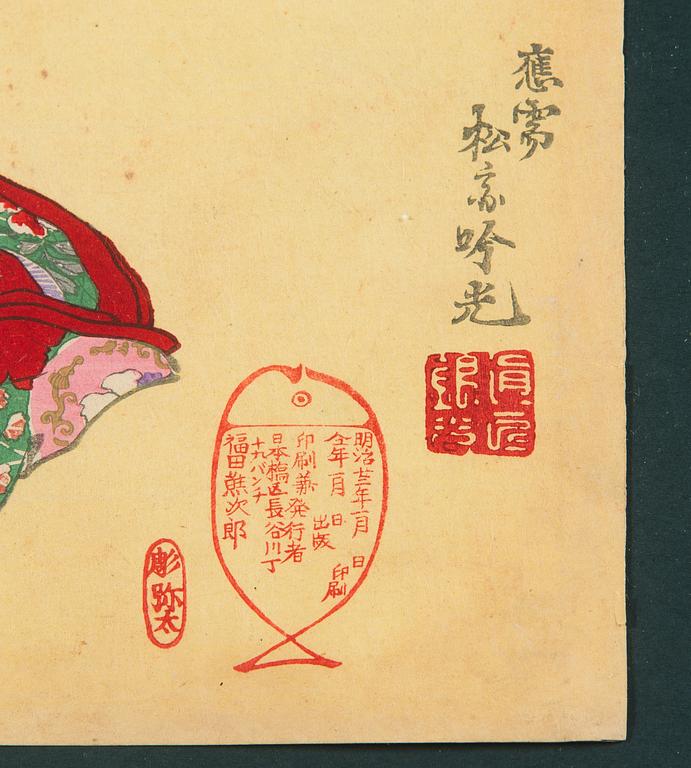 應需
松斎吟光
明治廿三年一月 日 印刷
仝年一月 日 出版
印刷兼発行者
日本橋区長谷川丁
十九バンチ
福田熊次郎
彫弥太